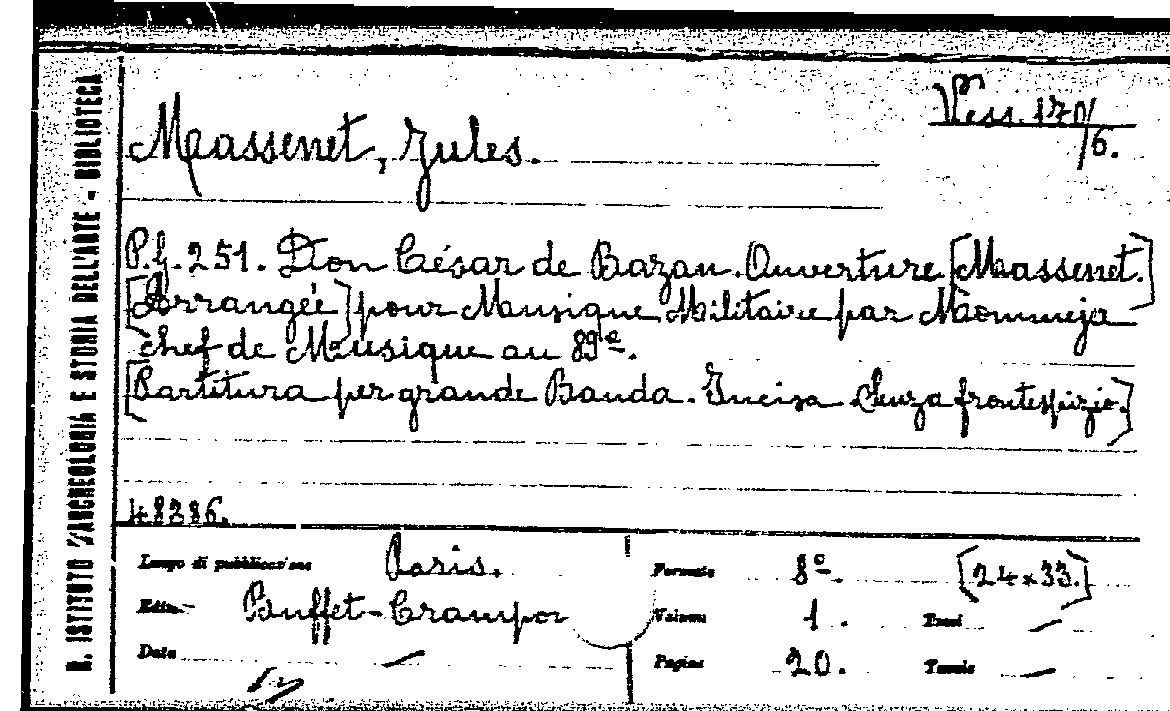 R. ISTITUTO D'ARCHEOLOGIA E STORIA DELL'ARTE - BIBLIOTECA
Vess. 170/6.
Massenet, Jules.
P.f. 251. Don César de Bazan. Ouverture [Massenet.]
[Arrangée] pour Musique Militaire par Mommeja
chef de Musique au 89e.
[Partitura per grande Banda. Incisa Senza frontespizio.]
48386.
Luogo di pubblicazione Paris.
Formato 8º. [24x33.]
Edit. Buffet-Crampon
Volumi 1.
Tomi —
Data —
Pagine 20.
Tavole —